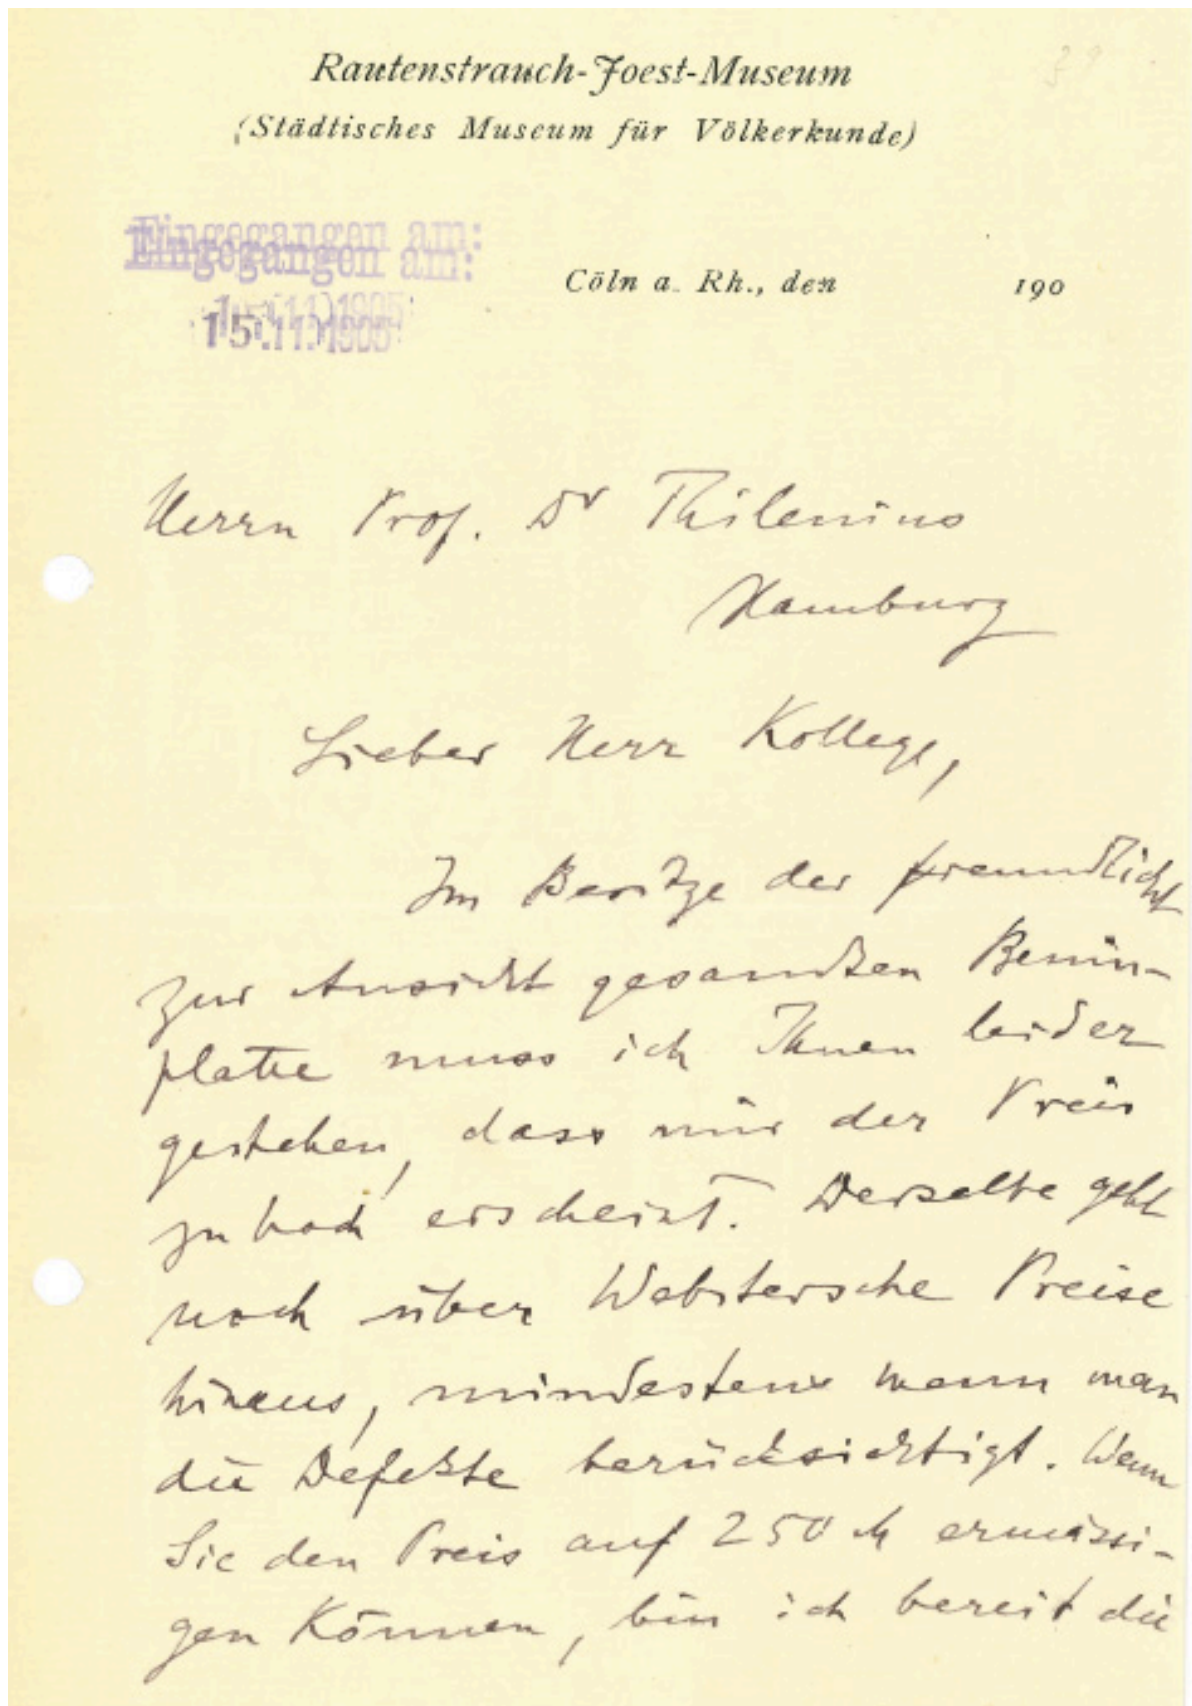 Rautenstrauch-Joest-Museum
(Städtisches Museum für Völkerkunde)
Eingegangen am:
15.11.1905
Cöln a. Rh., den 190
Herrn Prof. Dr Thilenius
Hamburg
Lieber Herr Kollege,
Im Besitze der freundlichst
zur Ansicht gesandten Benin-
platte muss ich Ihnen leider
gestehen, dass mir der Preis
zu hoch erscheint. Derselbe geht
noch über Webstersche Preise
hinaus, mindestens wenn man
die Defekte berücksichtigt. Wenn
Sie den Preis auf 250 M ermässi-
gen können, bin ich bereit die